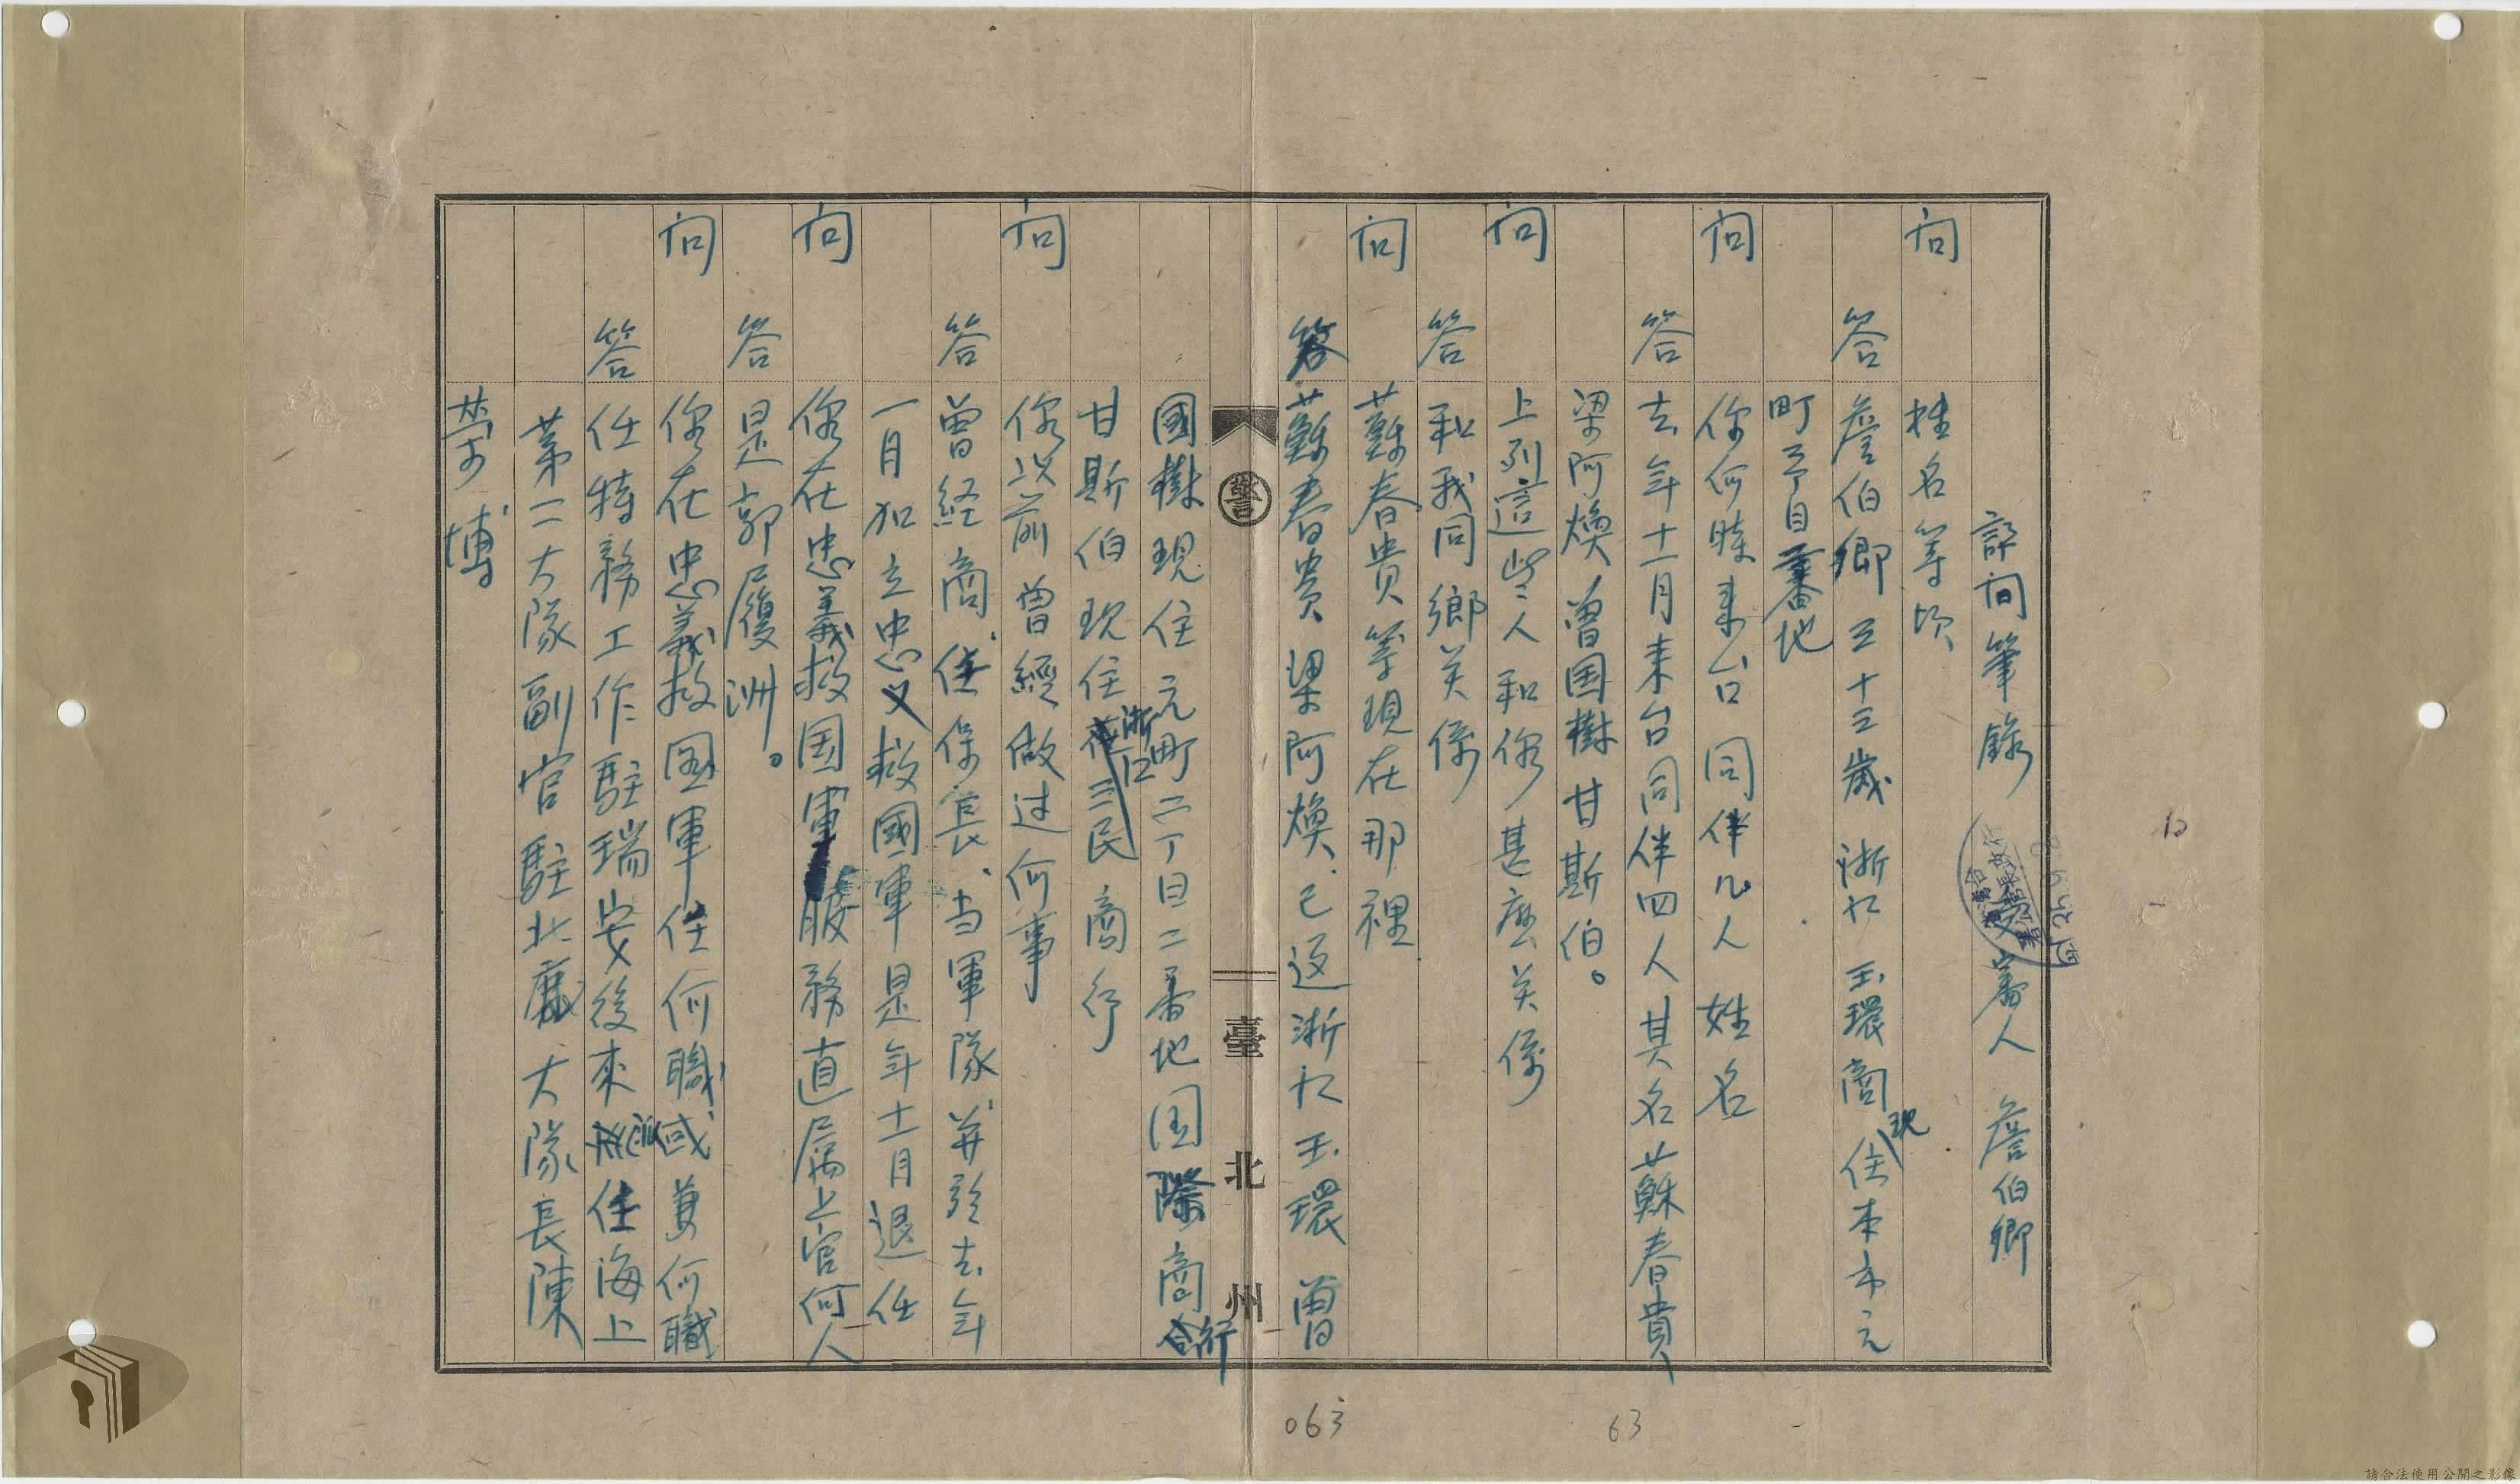 訊问筆錄 受審人 詹伯卿
问 姓名等项
答 詹伯卿 三十三歲 浙江玉環 商 现住本市元
町 丁目 番地
问 你何時来台 同伴几人 姓名
答 去年十一月来台同伴四人 其名蘇春貴
梁阿煥 曾国樹 甘斯伯。
问 上列這些人和你甚麽关係
答 和我同鄉关係
问 蘇春贵等現在那裡
答 蘇春貴 梁阿煥、已返浙江玉環 曾
國樹現住元町二丁目二番地国際商行
甘斯伯現住 三民商行
问 你以前曾經做过何事
答 曾经商、任保長、当軍隊、并於去年
一月加立忠义救國軍是年十一月退任
问 你在忠義救国軍服務直属上官何人
答 是郭履洲。
问 你在忠義救国軍任何職或兼何職
答 任特務工作駐瑞安後来 任海上
第二大隊副官駐北麂 大隊長陳
荣博
警
臺北州
063
63
請合法使用公開之影像